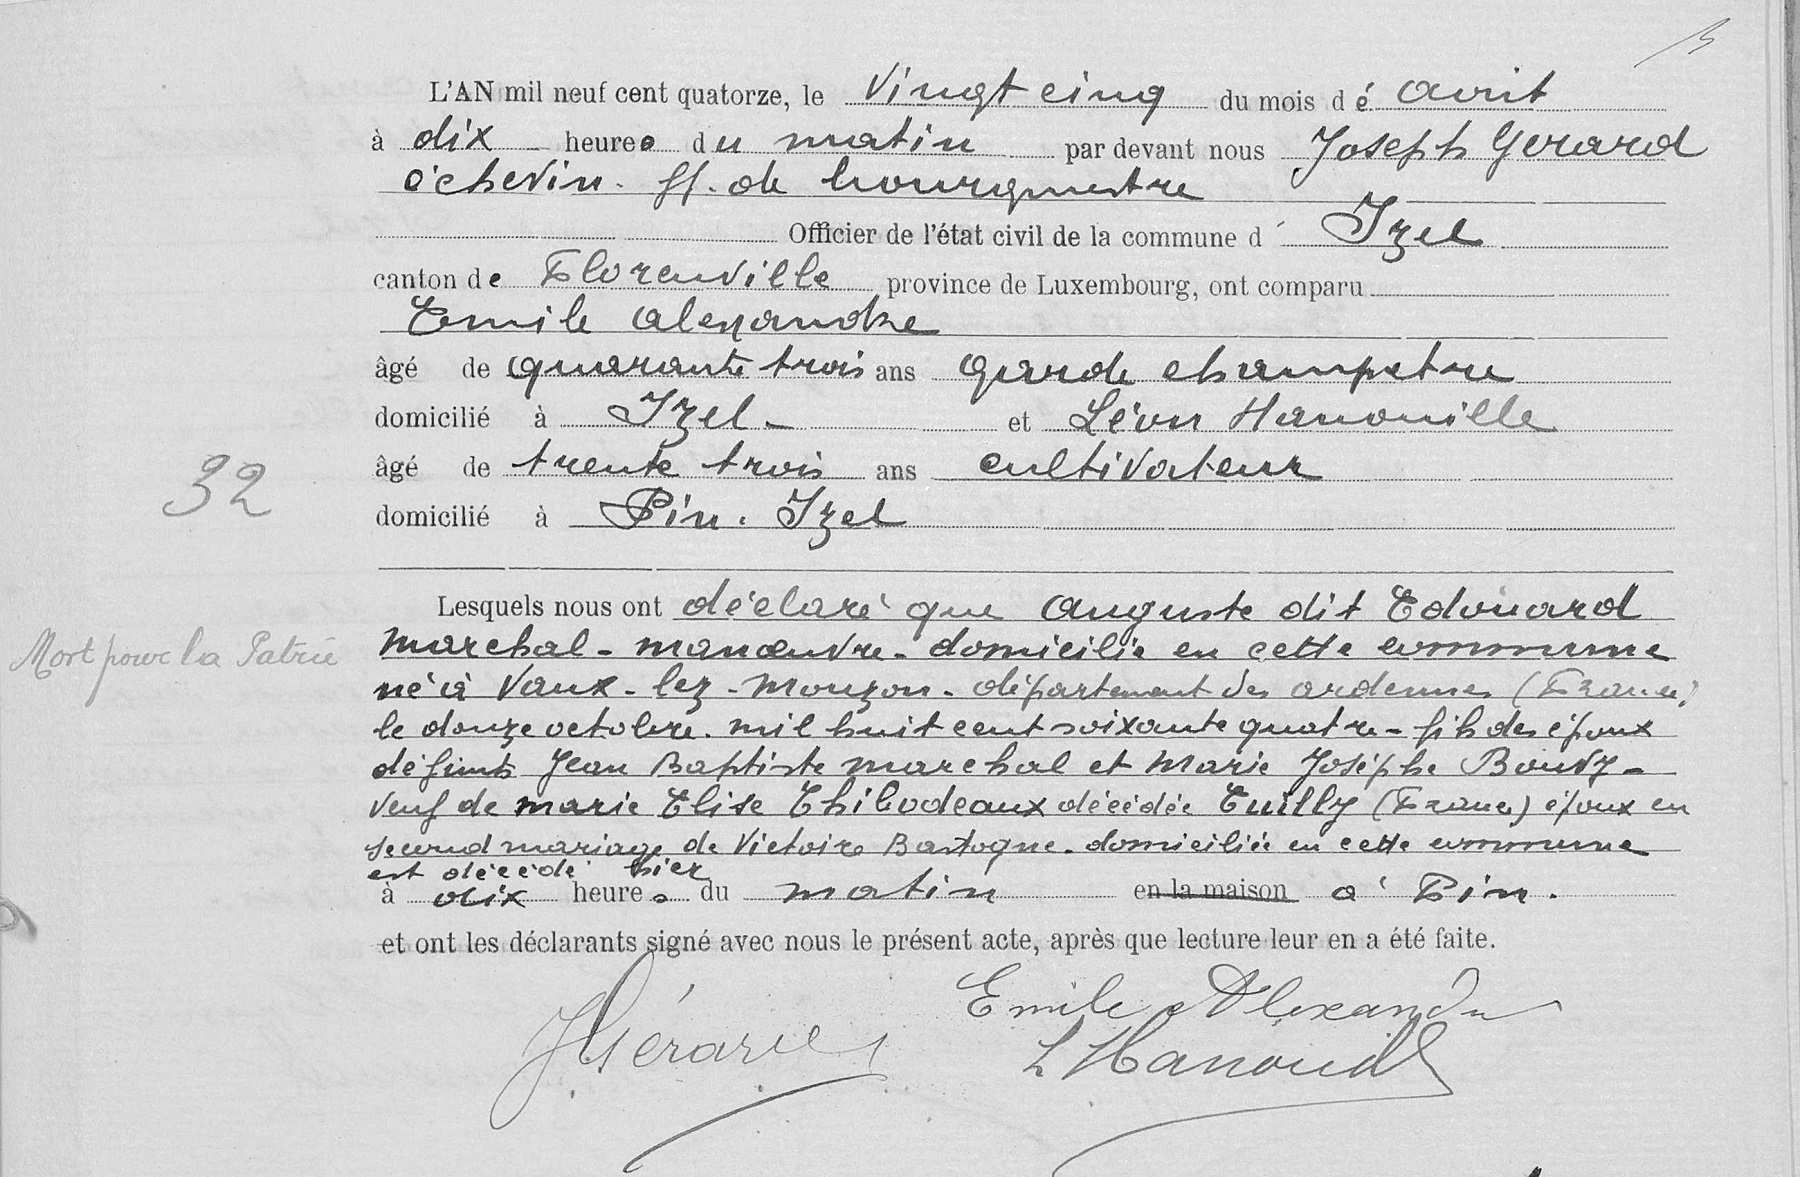 L'AN mil neuf cent quatorze, le vingt cinq du mois dé avril
à dix heures du matin par devant nous Joseph Gerard
échevin. ff. de bourgmestre
Officier de l'état civil de la commune d' Izel
canton de Florenville province de Luxembourg, ont comparu
Emile Alexandre
âgé de quarante trois ans garde champetre
domicilié à Izel - et Léon Hanouille
32
âgé de trente trois ans cultivateur
domicilié à Pin. Izel
Lesquels nous ont déclaré que Auguste dit Edouard
Mort pour la Patrie
Marchal - manœuvre - domicilié en cette commune
né à Vaux - lez - Mouzon - département des ardennes (France)
le douze octobre. mil huit cent soixante quatre - fils des époux
défunts Jean Baptiste Marchal et Marie Joséphe Bouvy -
veuf de Marie Elise Thibodeaux décédée Euilly (France) époux en
second mariage de Victoire Bastogne - domiciliée en cette commune
est décédé hier
à dix heures du matin en la maison à Pin.
et ont les déclarants signé avec nous le présent acte, après que lecture leur en a été faite.
JGérard
Emile Alexandre
L Hanouille